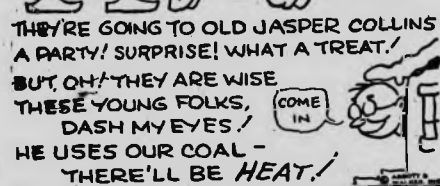 THEY'RE GOING TO OLD JASPER COLLINS
A PARTY! SURPRISE! WHAT A TREAT!
BUT, OH! THEY ARE WISE
THESE YOUNG FOLKS,
DASH MY EYES!
HE USES OUR COAL -
THERE'LL BE HEAT!
COME
IN